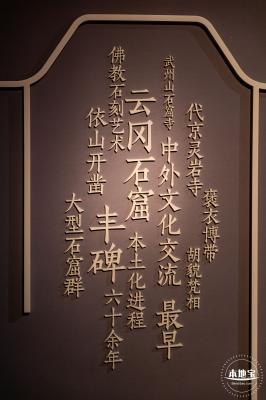 褒衣博带
代京灵岩寺
胡貌梵相
武州山石窟寺
中外文化交流
最早
云冈石窟
本土化进程
佛教石刻艺术
依山开凿
丰碑
六十余年
大型石窟群
本地宝